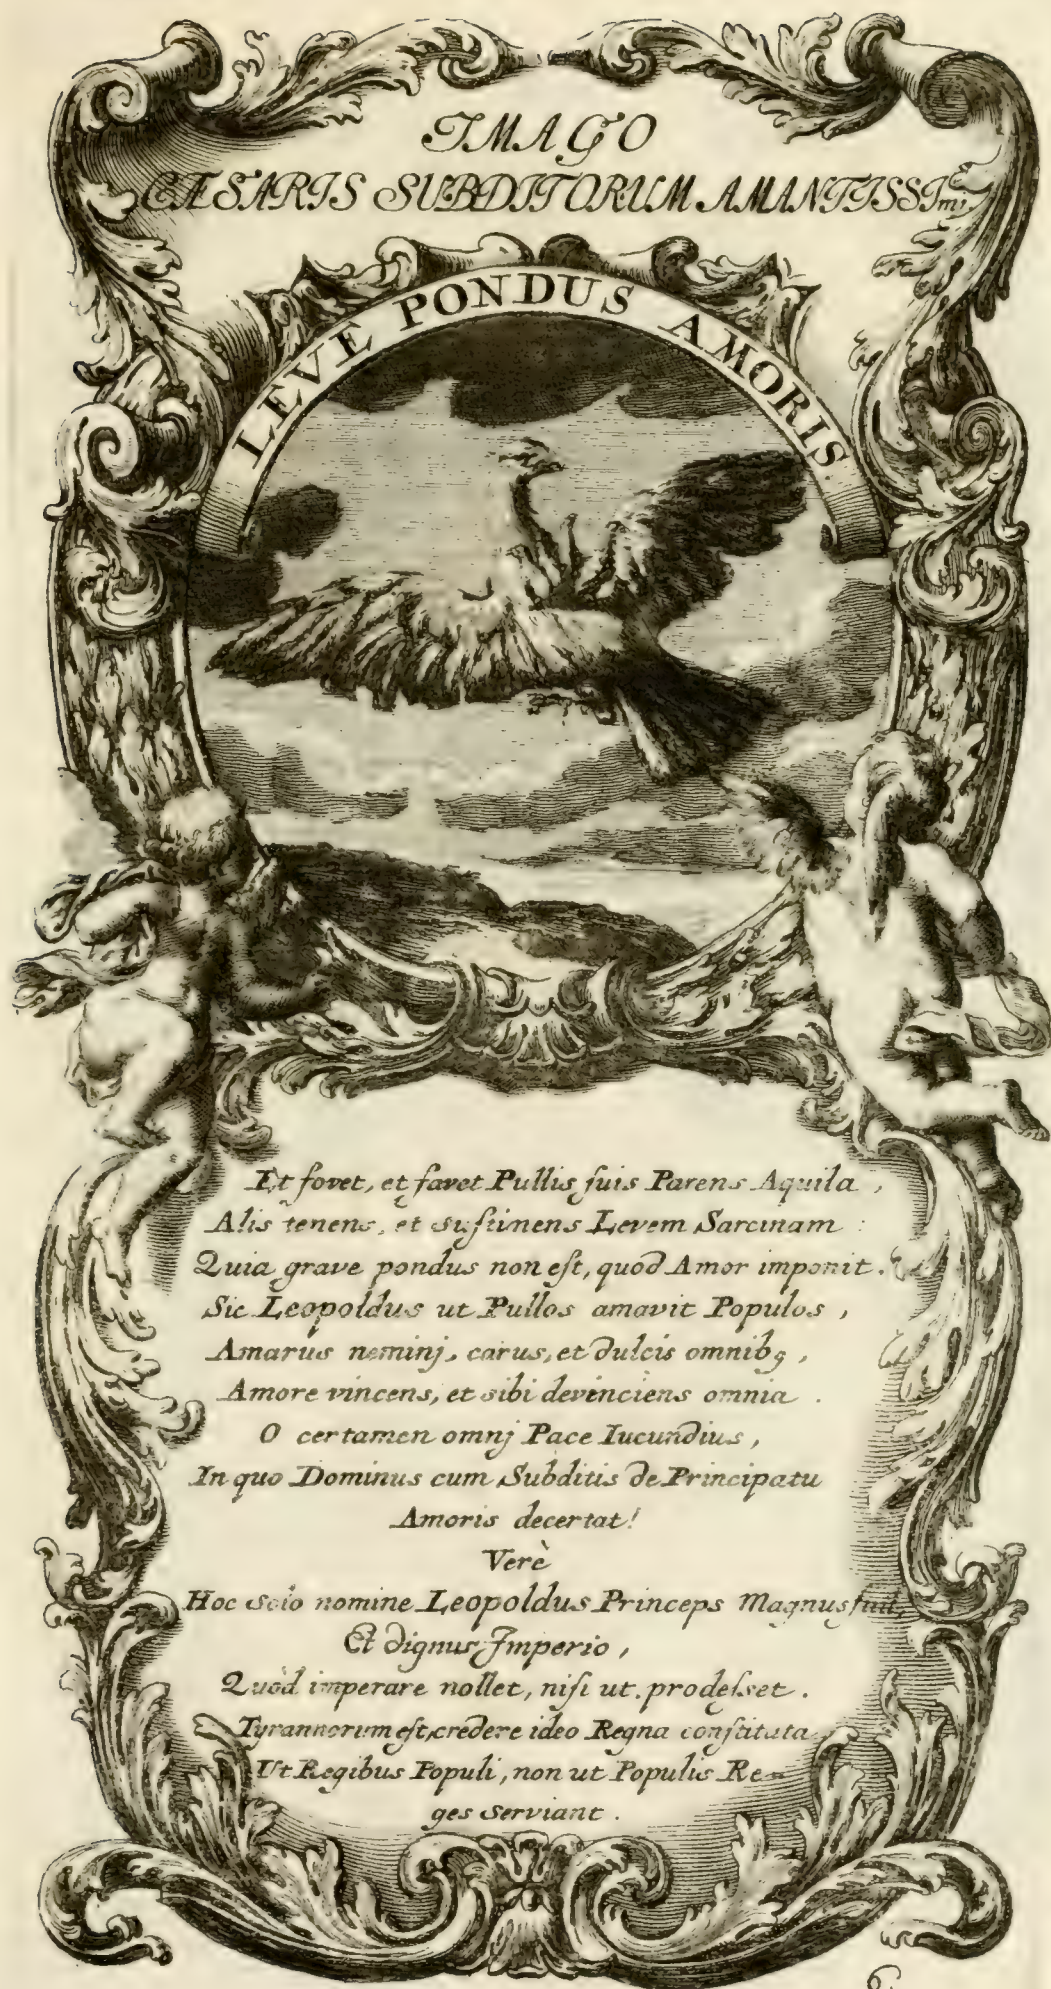 IMAGO
CÆSARIS SUBDITORUM AMANTISSImi
LEVE PONDUS AMORIS.
Et fovet, et favet Pullis ſuis Parens Aquila,
Alis tenens, et suſtinens Levem Sarcinam:
Quia grave pondus non eſt, quod Amor imponit.
Sic Leopoldus ut Pullos amavit Populos,
Amarus neminj, carus, et dulcis omnibꝫ,
Amore vincens, et sibi devinciens omnia.
O certamen omnj Pace Iucundius,
In quo Dominus cum Subditis de Principatu
Amoris decertat!
Verè
Hoc solo nomine Leopoldus Princeps Magnus fuit,
Et dignus Imperio,
Quòd imperare nollet, niſi ut prodeſset.
Tyrannorum eſt, credere ideo Regna conſtituta
Ut Regibus Populi, non ut Populis Re-
ges serviant.
6.